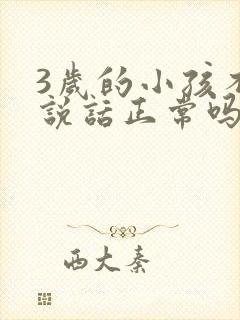 3歲的小孩不
說話正常嗎
西大秦